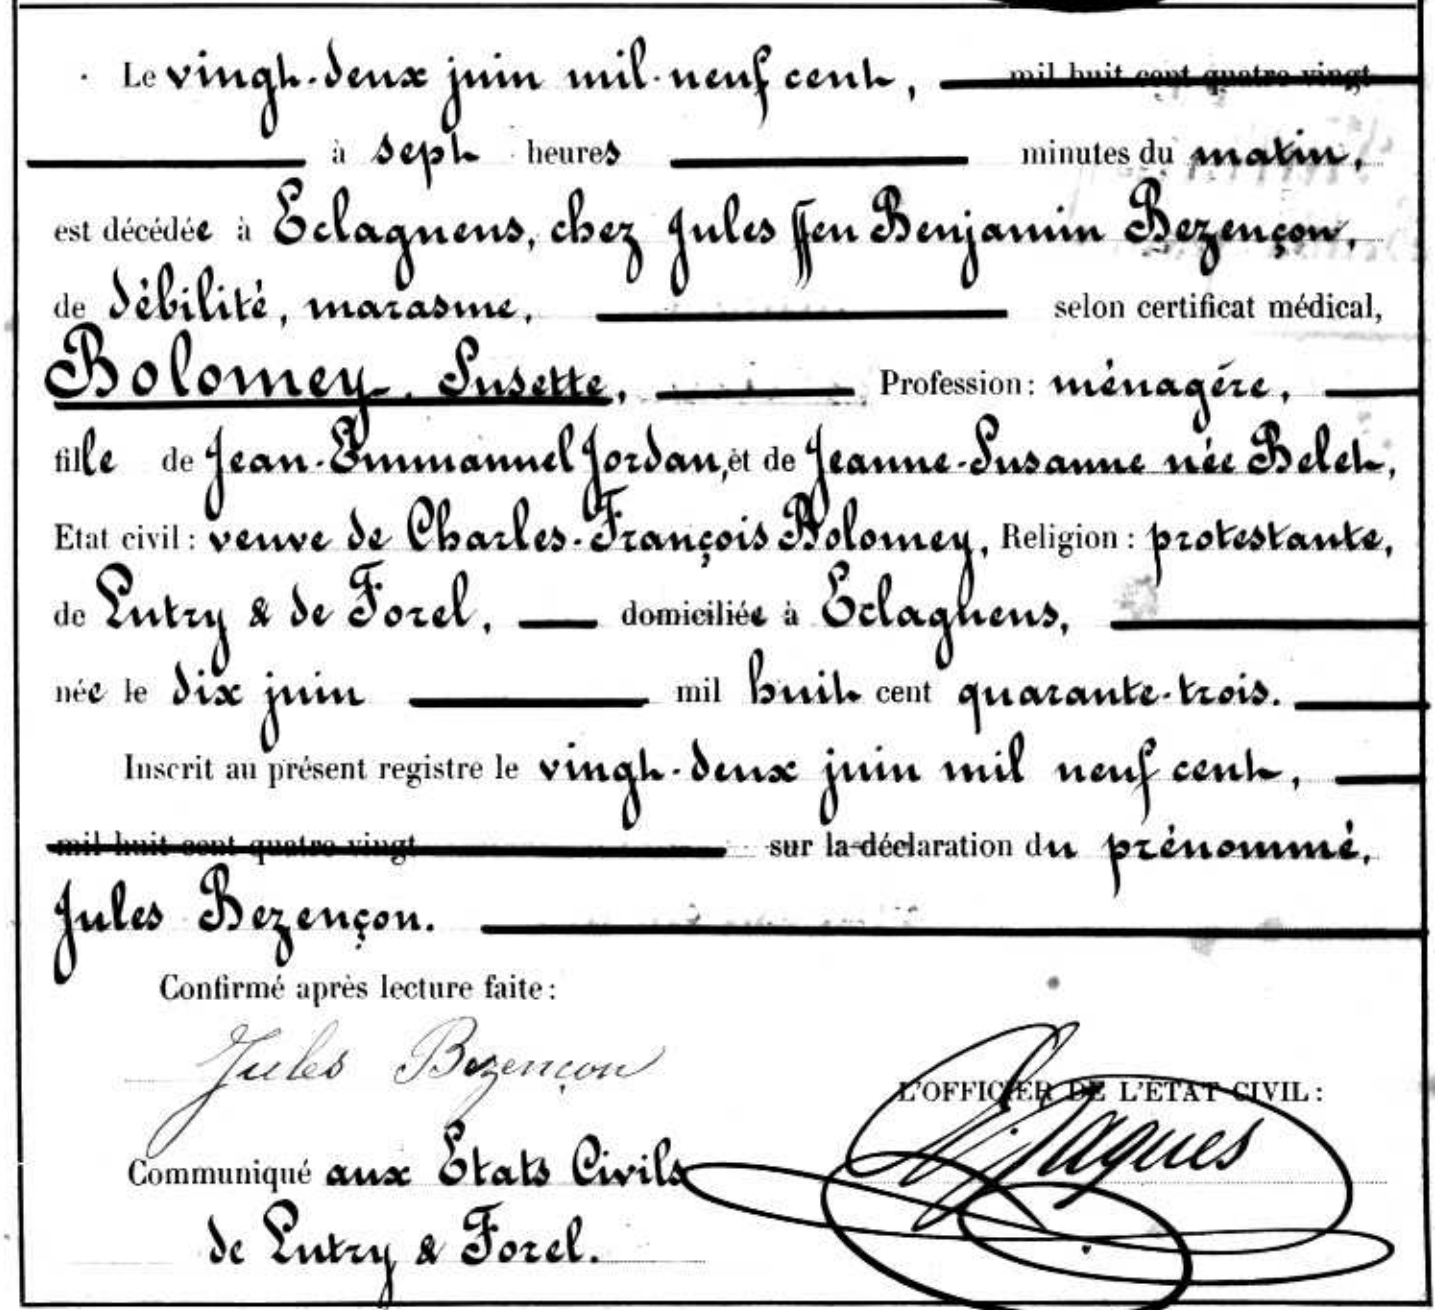 Le vingt-deux juin mil neuf cent, mil huit cent quatre vingt
à sept heures minutes du matin,
est décédée à Eclagnens, chez Jules ffeu Benjamin Bezençon,
de débilité, marasme, selon certificat médical,
Bolomey, Susette, Profession: ménagère,
fille de Jean-Emmanuel Jordan, et de Jeanne-Susanne née Belet,
Etat civil: veuve de Charles-François Bolomey, Religion: protestante,
de Lutry & de Forel, domiciliée à Eclagnens,
née le dix juin mil huit cent quarante-trois.
Inscrit au présent registre le vingt-deux juin mil neuf cent,
mil huit cent quatre vingt sur la déclaration du prénommé,
Jules Bezençon.
Confirmé après lecture faite:
Jules Bezençon
L'OFFICIER DE L'ETAT CIVIL:
Jaques
Communiqué aux Etats Civils
de Lutry & Forel.